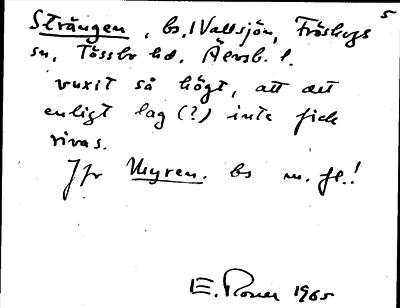 5
Strängen, bs. i Vallsjön, Fröskogs
sn, Tössbo hd, Älvsb. l.
vuxit så högt, att det
enligt lag (?) inte fick
rivas.
Jfr Myren. bs m. fl.!
E. Rosen 1965